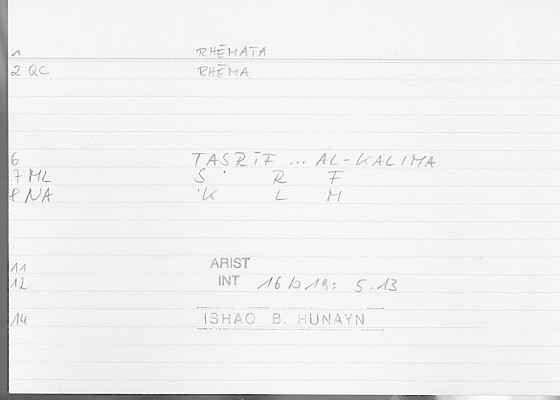 1 RHĒMATA
2 QC RHĒMA
6 TASRĪF ... AL-KALIMA
7 ML S R F
8 NA K L M
11 ARIST
12 INT 16 b 19: 5.13
14 ISHAQ B. HUNAYN